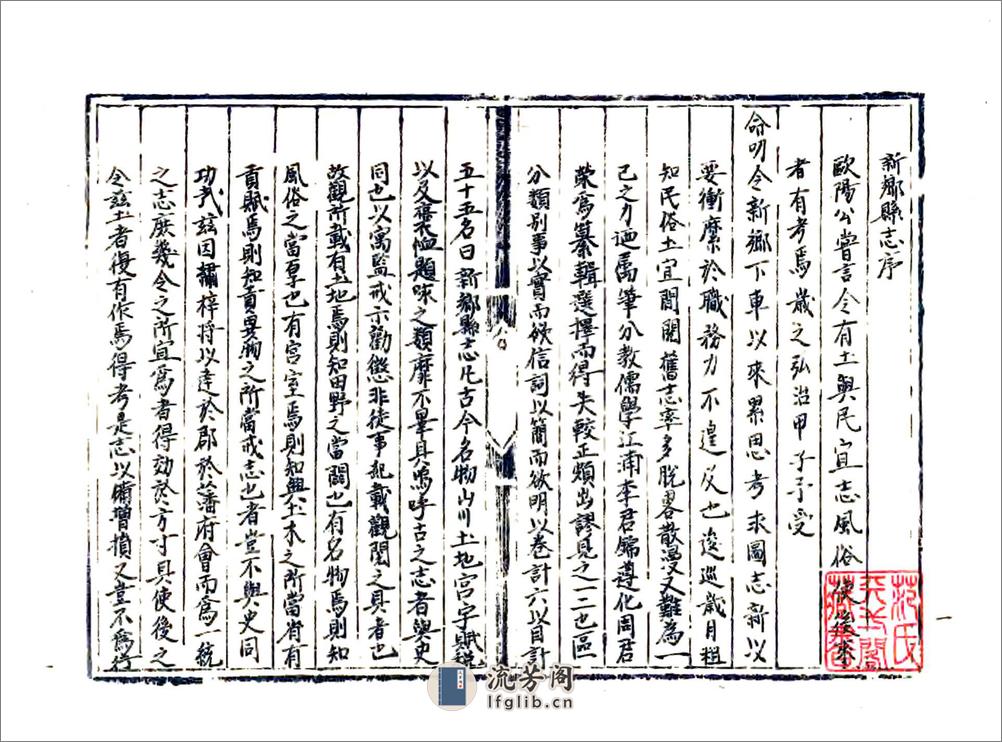 新鄉縣志序
歐陽公嘗言令有土與民宜志風俗使後來
者有考焉歲之弘治甲子予受
命叨令新鄉下車以來累思考求圖志新以
要衝縻於職務力不遑及也逡巡歲月粗
知民俗土宜間閱舊志率多脫畧散漫又難為一
己之力迺禹筆分教儒學江浦李君錦遵化周君
榮為纂輯選擇而得失較正頗出謬見之一二也區
分類別事以實而欲信詞以簡而欲明以卷計六以目計
五十五名曰新鄉縣志凡古今名物山川土地宮宇賦稅
以及題咏之類靡不畢具嗚呼古之志者與史
同也以寓監戒示勸懲非徒事紀載觀閱之具者也
故觀所載有土地焉則知田野之當闢也有名物焉則知
風俗之當厚也有宮室焉則知興土木之所當省有
貢賦焉則知貢異物之所當戒志也者豈不與史同
功哉茲因繡梓將以達於郡於藩府會而為一統
之志庶幾令之所宜為者得効於方寸具使後之
令茲土者復有作焉得考是志以備增損又豈不為行
一
范氏天一閣藏書
流芳阁
lfglib.cn